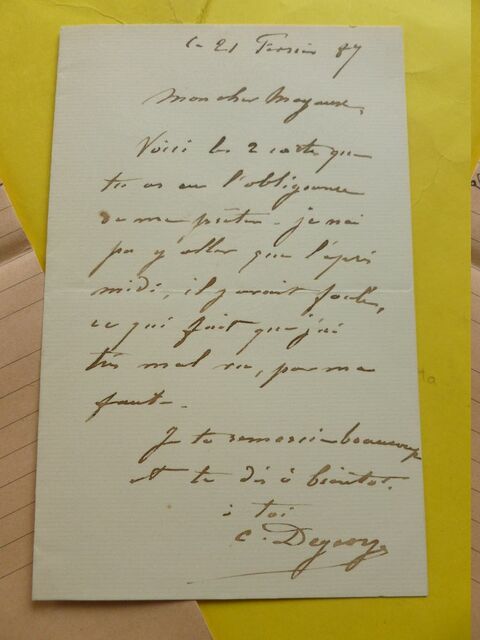 Le 21 Février 87
Mon cher Mayeux,
Voici les 2 cartes que
tu as eu l'obligeance
de me prêter. je n'ai
pu y aller que l'après
midi, il y avait foule,
ce qui fait que j'ai
très mal vu, par ma
faute.
Je te remercie beaucoup
et te dis à bientôt.
à toi
C. Degeorge